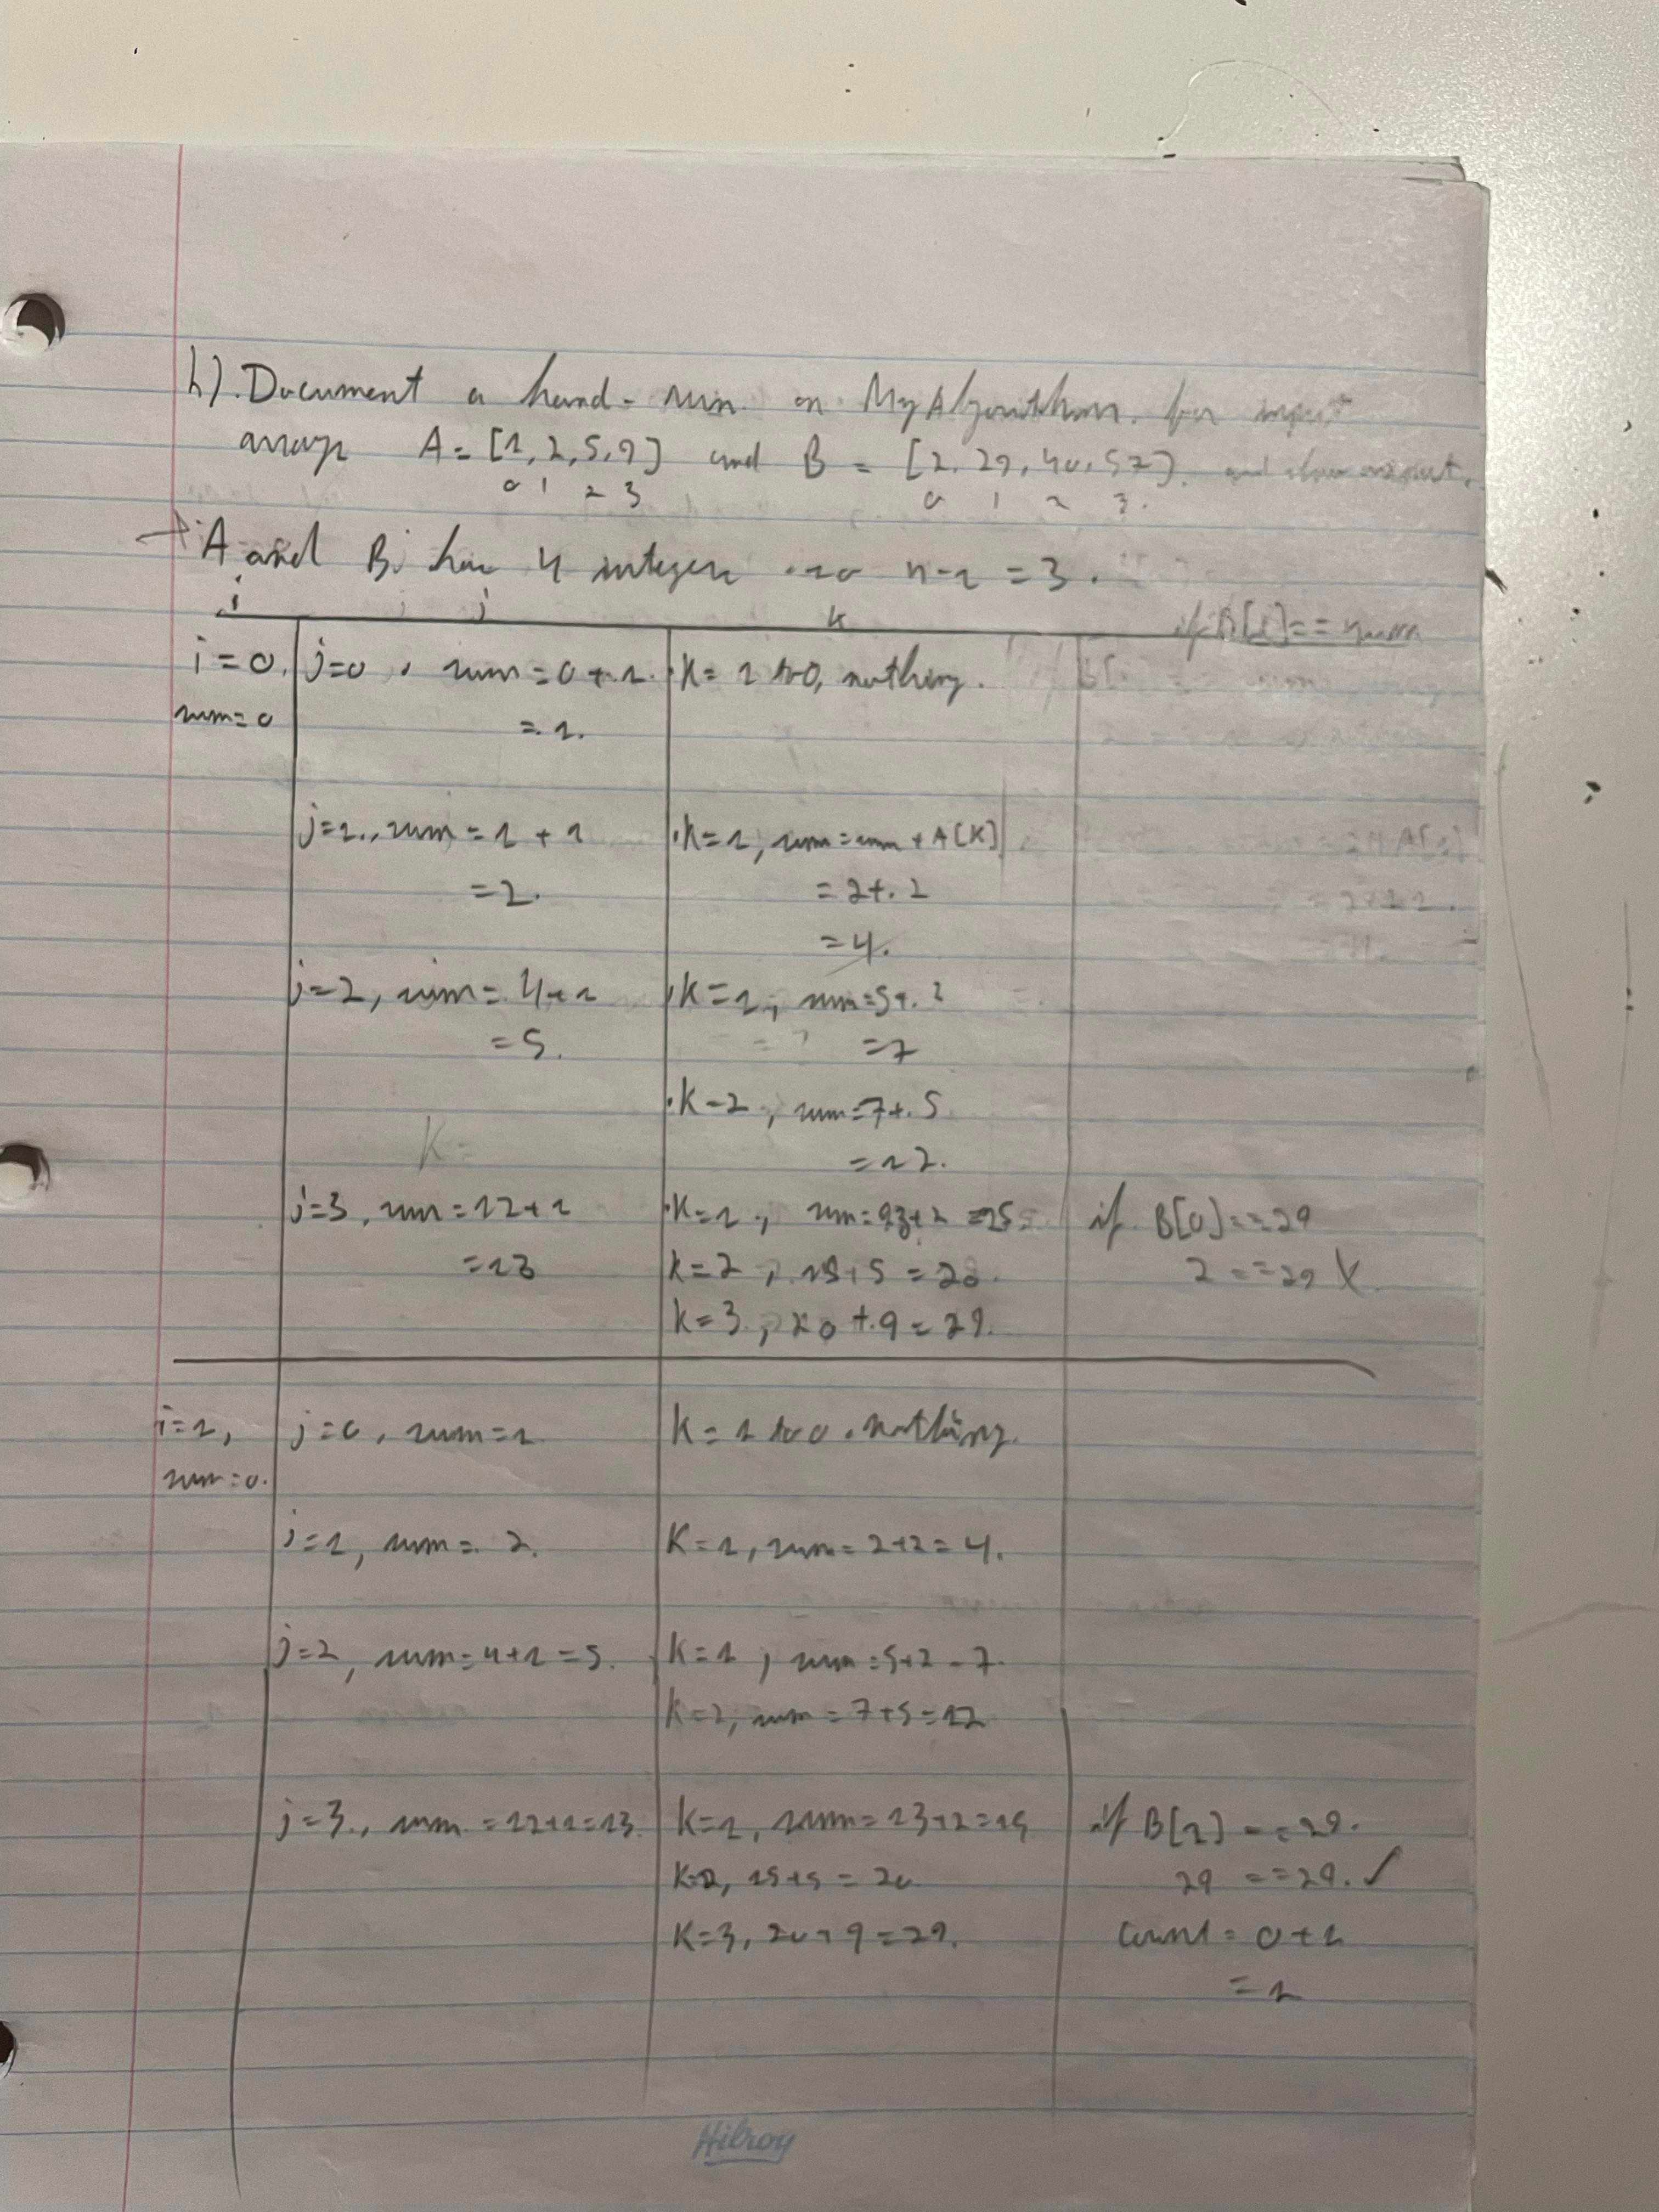 b). Document a hand-run on MyAlgorithm. for input
arrays A = [1, 2, 5, 9] and B = [2, 29, 40, 57]. and show output.
0 1 2 3 0 1 2 3.
A and B has 4 integers so n-1 = 3.
i j k if B[i] == sum
i=0. j=0, sum = 0+1. k= 1 to 0, nothing.
sum=0 = 1.
j=1., sum = 1 + 1 k=1, sum = sum + A[K]
= 2. = 2+. 2
= 4.
j=2, sum = 4+1 k=1, sum=5+. 2
= 5. =7
k=2, sum=7+. 5
K= =12.
j=3, sum = 12+1 k=1, sum=13+2 =15 if B[0]==29
=13 k=2, 15+5 = 20. 2 ==29 X
k=3, 20 +. 9 = 29.
i=1, j=0, sum=1 k= 1 to 0. nothing.
sum=0.
j=1, sum = 2. K=1, sum= 2+2= 4.
j=2, sum=4+1=5. K=1, sum=5+2=7.
K=2, sum = 7+5=12
j=3., sum = 12+1=13. K=1, sum=13+2=15 if B[1] ==29.
K=2, 15+5 = 20 29 ==29. ✓
K=3, 20+9=29. count = 0+1
= 1
Hilroy